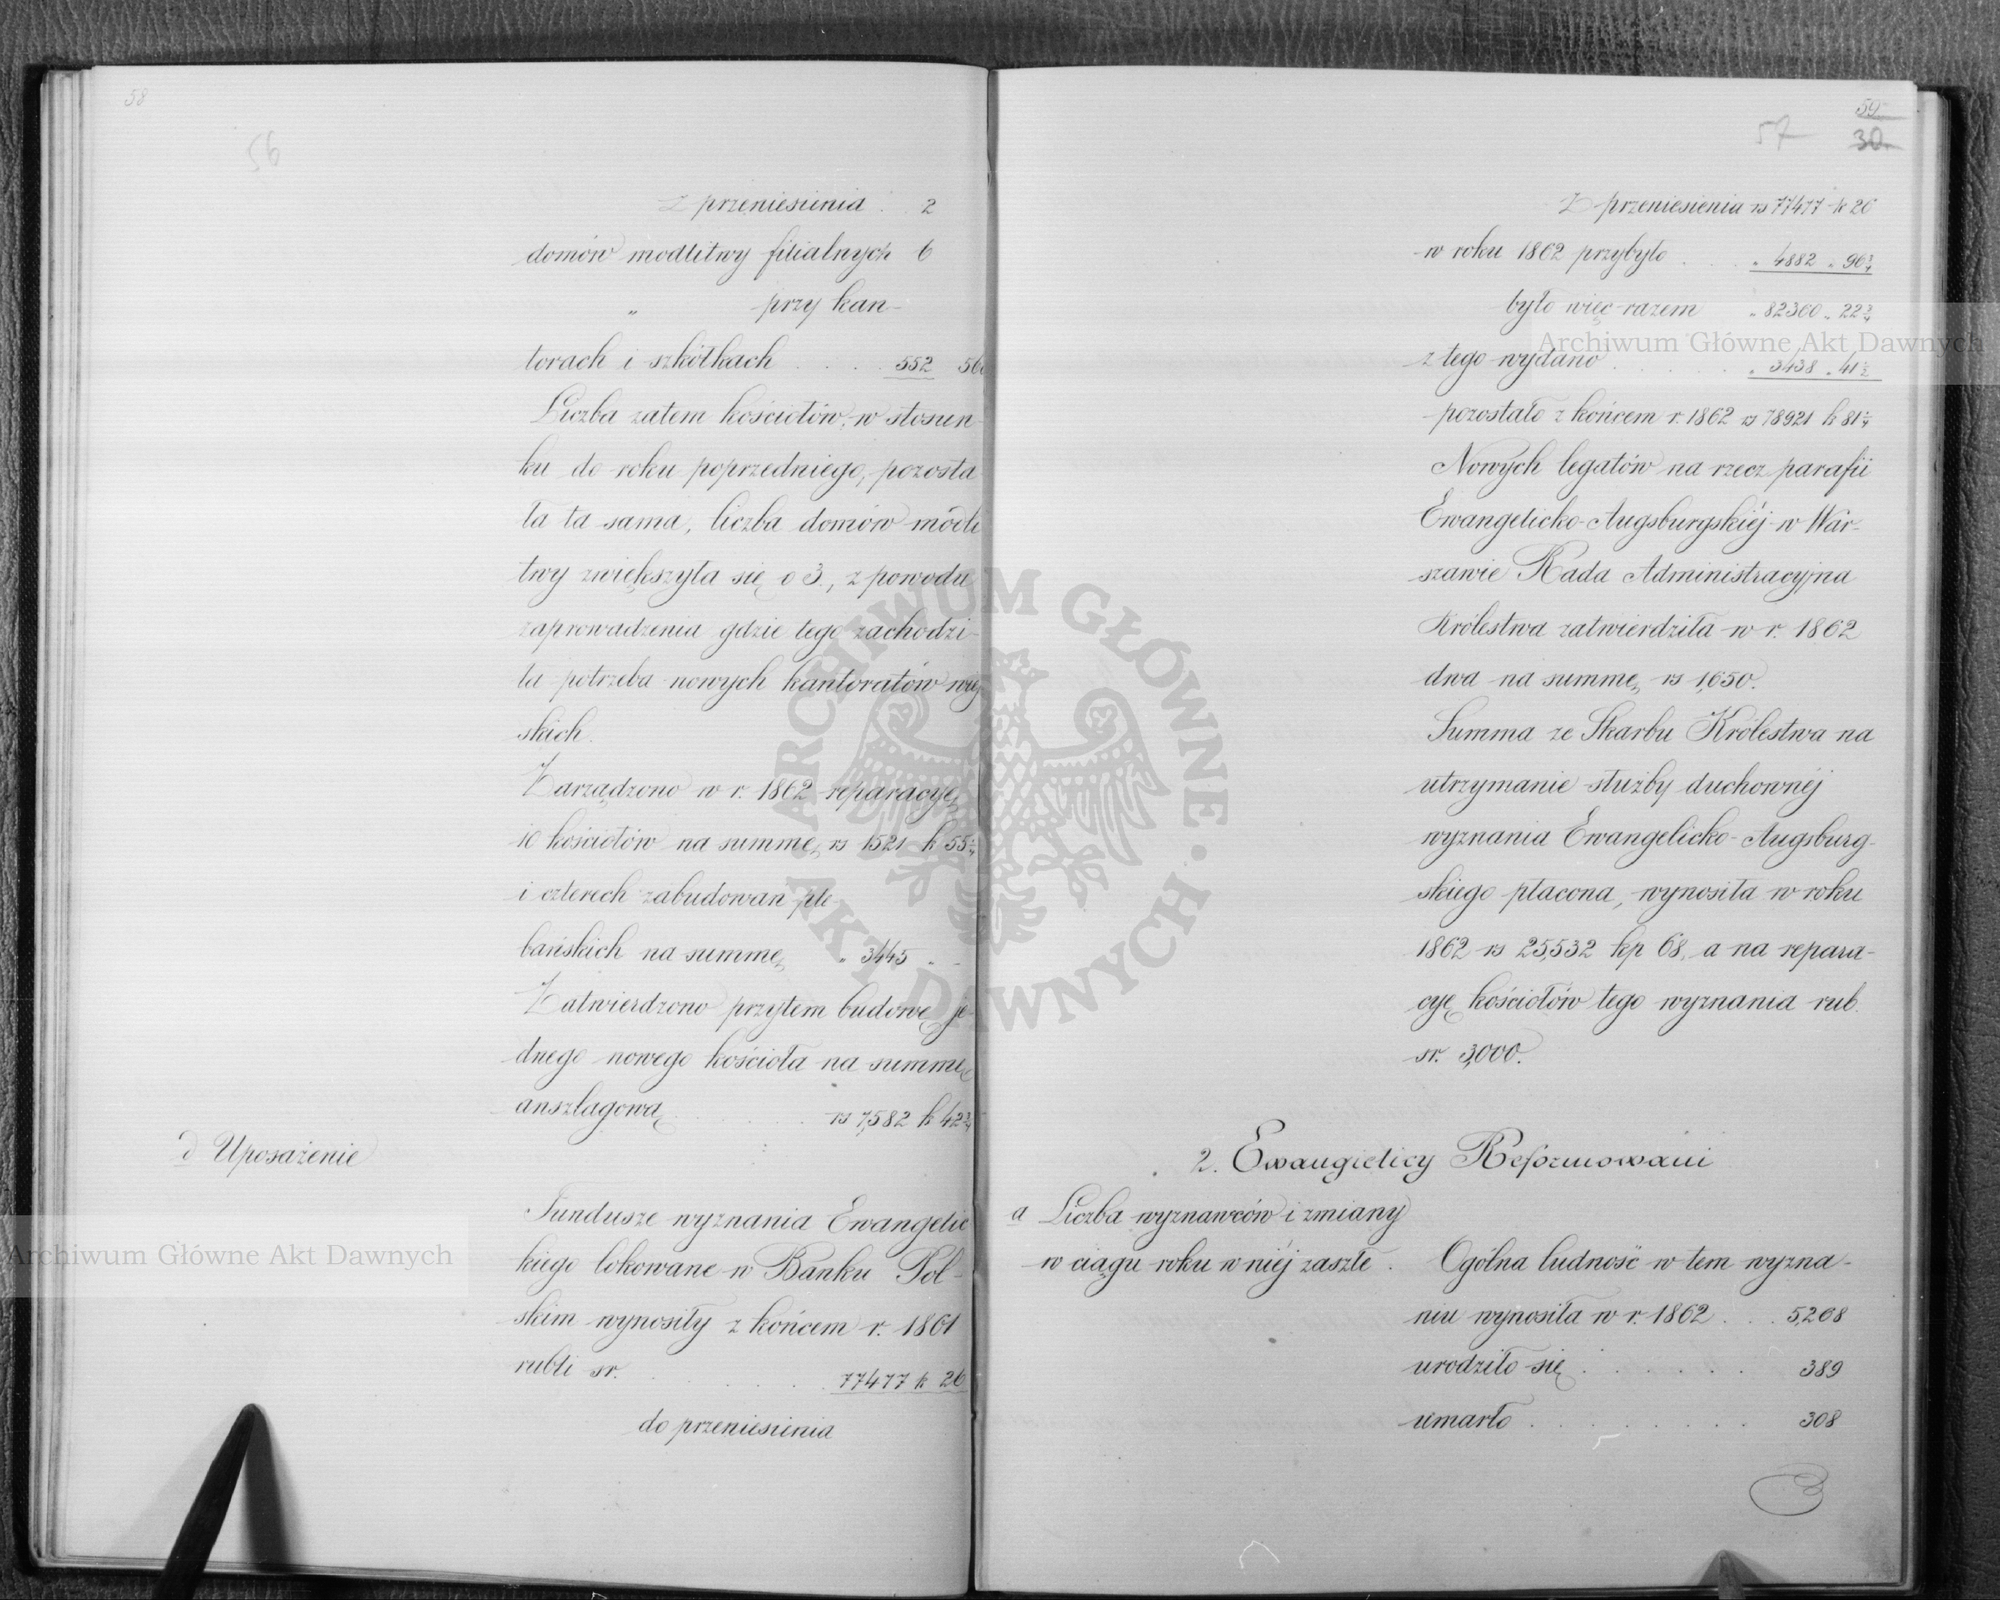 58
56
Z przeniesienia . 2
domów modlitwy filialnych 6
" przy kan-
torach i szkółkach . . . . 552 560
Liczba zatem kościołów, w stosun-
ku do roku poprzedniego, pozosta
ła ta sama, liczba domów modli
twy zwiększyła się o 3, z powodu
zaprowadzenia gdzie tego zachodzi-
ła potrzeba nowych kantoratów wiej
skich.
Zarządzono w r. 1862 reparacyę
10 kościołów na summę rs 1521 k 55
i czterech zabudowań ple-
bańskich na summę " 3445 " -
Zatwierdzono przytem budowę je-
dnego nowego kościoła na summę
anszlagową . . . . rs 7,582 k 42 3/4
d Uposażenie
Fundusze wyznania Ewangelic
kiego lokowane w Banku Pol-
skim wynosiły z końcem r. 1861
rubli sr. . . . . . 77477 k 26
do przeniesienia
59
57 30
Z przeniesienia rs 77477 k 26
w roku 1862 przybyło . . " 4882 " 96 3/4
było więc razem " 82360 " 22 3/4
z tego wydano . . . . " 3438 " 41 1/2
pozostało z końcem r. 1862 rs 78921 k 81 1/4
Nowych legatów na rzecz parafii
Ewangelicko-Augsburgskiéj w War-
szawie Rada Administracyjna
Królestwa zatwierdziła w r. 1862
dwa na summę rs 1,650.
Summa ze Skarbu Królestwa na
utrzymanie służby duchownéj
wyznania Ewangelicko-Augsburg-
skiego płacona, wynosiła w roku
1862 rs 25,532 kp 68, a na repara-
cyę kościołów tego wyznania rub.
sr. 3,000.
2. Ewangielicy Reformowani
a Liczba wyznawców i zmiany
w ciągu roku w niéj zaszłe .
Ogólna ludność w tem wyzna-
niu wynosiła w r. 1862 . . . 5,268
urodziło się . . . . . . 389
umarło . . . . . . . . 308
Archiwum Główne Akt Dawnych
Archiwum Główne Akt Dawnych
ARCHIWUM GŁÓWNE · AKT DAWNYCH ·